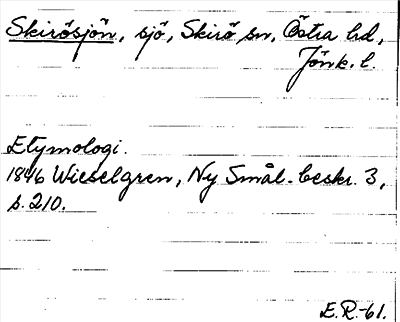 Skirösjön, sjö, Skirö sn, Östra hd,
Jönk. l.
Etymologi.
1846 Wieselgren, Ny Smål. beskr. 3,
s. 210.
E.R.-61.